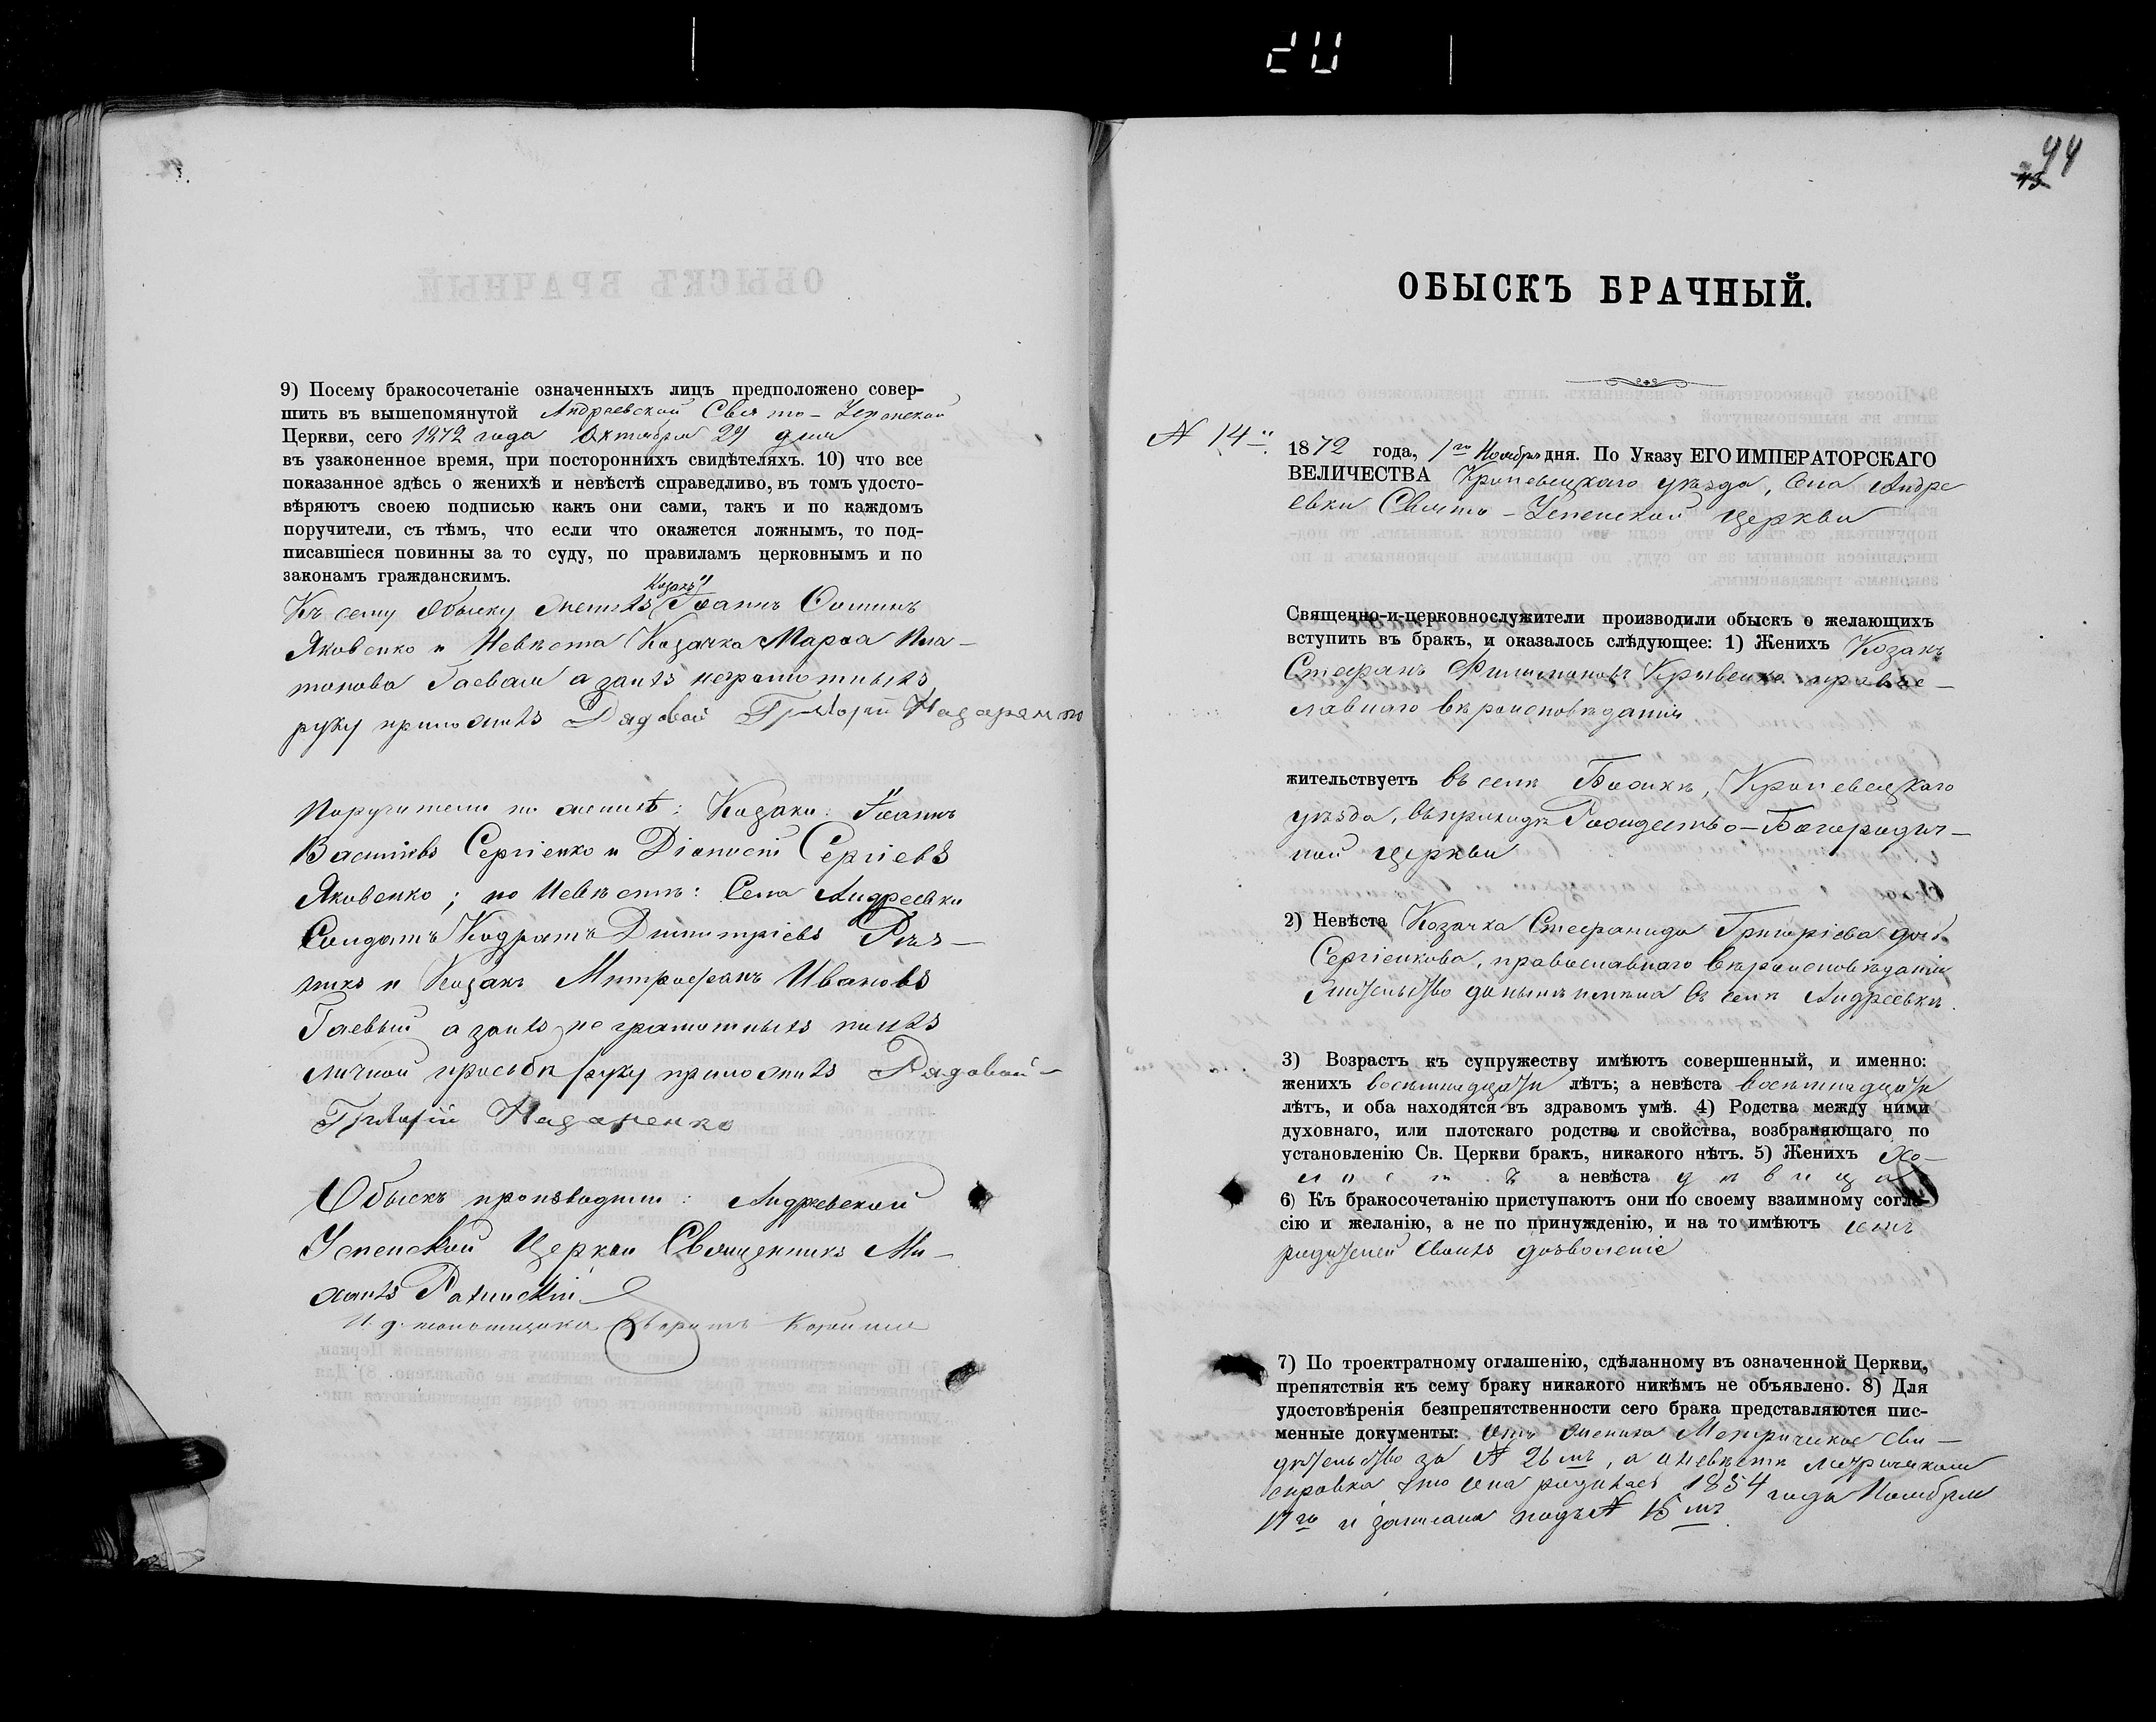 20
9) Посему бракосочетаніе означенныхъ лицъ предположено совер-
шить въ вышепомянутой Андреевской Свято-Успенской
Церкви, сего 1872 года Октября 29 дня
въ узаконенное время, при постороннихъ свидѣтеляхъ. 10) что все
показанное здѣсь о женихѣ и невѣстѣ справедливо, въ томъ удосто-
вѣряютъ своею подписью какъ они сами, такъ и по каждомъ
поручители, съ тѣмъ, что если что окажется ложнымъ, то под-
писавшіеся повинны за то суду, по правиламъ церковнымъ и по
законамъ гражданскимъ.
Козакъ
Къ сему Обыску Женихъ Іоаннъ Ѳоминъ
Яковенко и Невѣста Козачка Марѳа Пла-
тонова Гаевая а за нихъ неграмотныхъ
руку приложилъ Рядовой Григорій Назаренко
Поручители по женихѣ: Козаки: Іоаннъ
Васильевъ Сергіенко и Діонисій Сергіевъ
Яковенко; по Невѣстѣ: Села Андреевки
Солдатъ Кодратъ Димитріевъ Рѣз-
никъ и Козакъ Митрофанъ Ивановъ
Гаевый а за нихъ не грамотныхъ по ихъ
личной просьбѣ руку приложилъ Рядовой
Григорій Назаренко
Обыскъ производили: Андреевской
Успенской Церкви Священникъ Ми-
хаилъ
И. д. псаломщика
44
43
ОБЫСКЪ БРАЧНЫЙ.
N 14
1872 года, 1го Ноября дня. По Указу ЕГО ИМПЕРАТОРСКАГО
ВЕЛИЧЕСТВА Кролевецкаго уѣзда, Села Андре
евки Свято-Успенской церкви
Священно-и-церковнослужители производили обыскъ о желающихъ
вступить въ бракъ, и оказалось слѣдующее: 1) Женихъ Козакъ
Стефанъ Филимоновъ Кривенко православ-
лавнаго вѣроисповѣданія
жительствуетъ въ селѣ Кролевецкаго
уѣзда, въ приходѣ Рождество-Богородич-
ной церкви
2) Невѣста Козачка Стефанида Григоріева дочь
Сергіенкова, православнаго вѣроисповѣданія
Жительство донынѣ имѣла въ селѣ Андреевкѣ.
3) Возрастъ къ супружеству имѣютъ совершенный, и именно:
женихъ восемнадцати лѣтъ; а невѣста восемнадцати
лѣтъ, и оба находятся въ здравомъ умѣ. 4) Родства между ними
духовнаго, или плотскаго родства и свойства, возбраняющаго по
установленію Св. Церкви бракъ, никакого нѣтъ. 5) Женихъ Хо-
лостъ а невѣста дѣвица
6) Къ бракосочетанію приступаютъ они по своему взаимному согла-
сію и желанію, а не по принужденію, и на то имѣютъ отъ
родителей своихъ дозволеніе
7) По троекратному оглашенію, сдѣланному въ означенной Церкви,
препятствія къ сему браку никакого никѣмъ не объявлено. 8) Для
удостовѣренія безпрепятственности сего брака представляются пис-
менные документы: Отъ Жениха Метрическое сви-
дѣтельство за N 26мъ, а о невѣстѣ метрическая
справка что она родилась 1854 года Ноября
17го и записана подъ N 15мъ